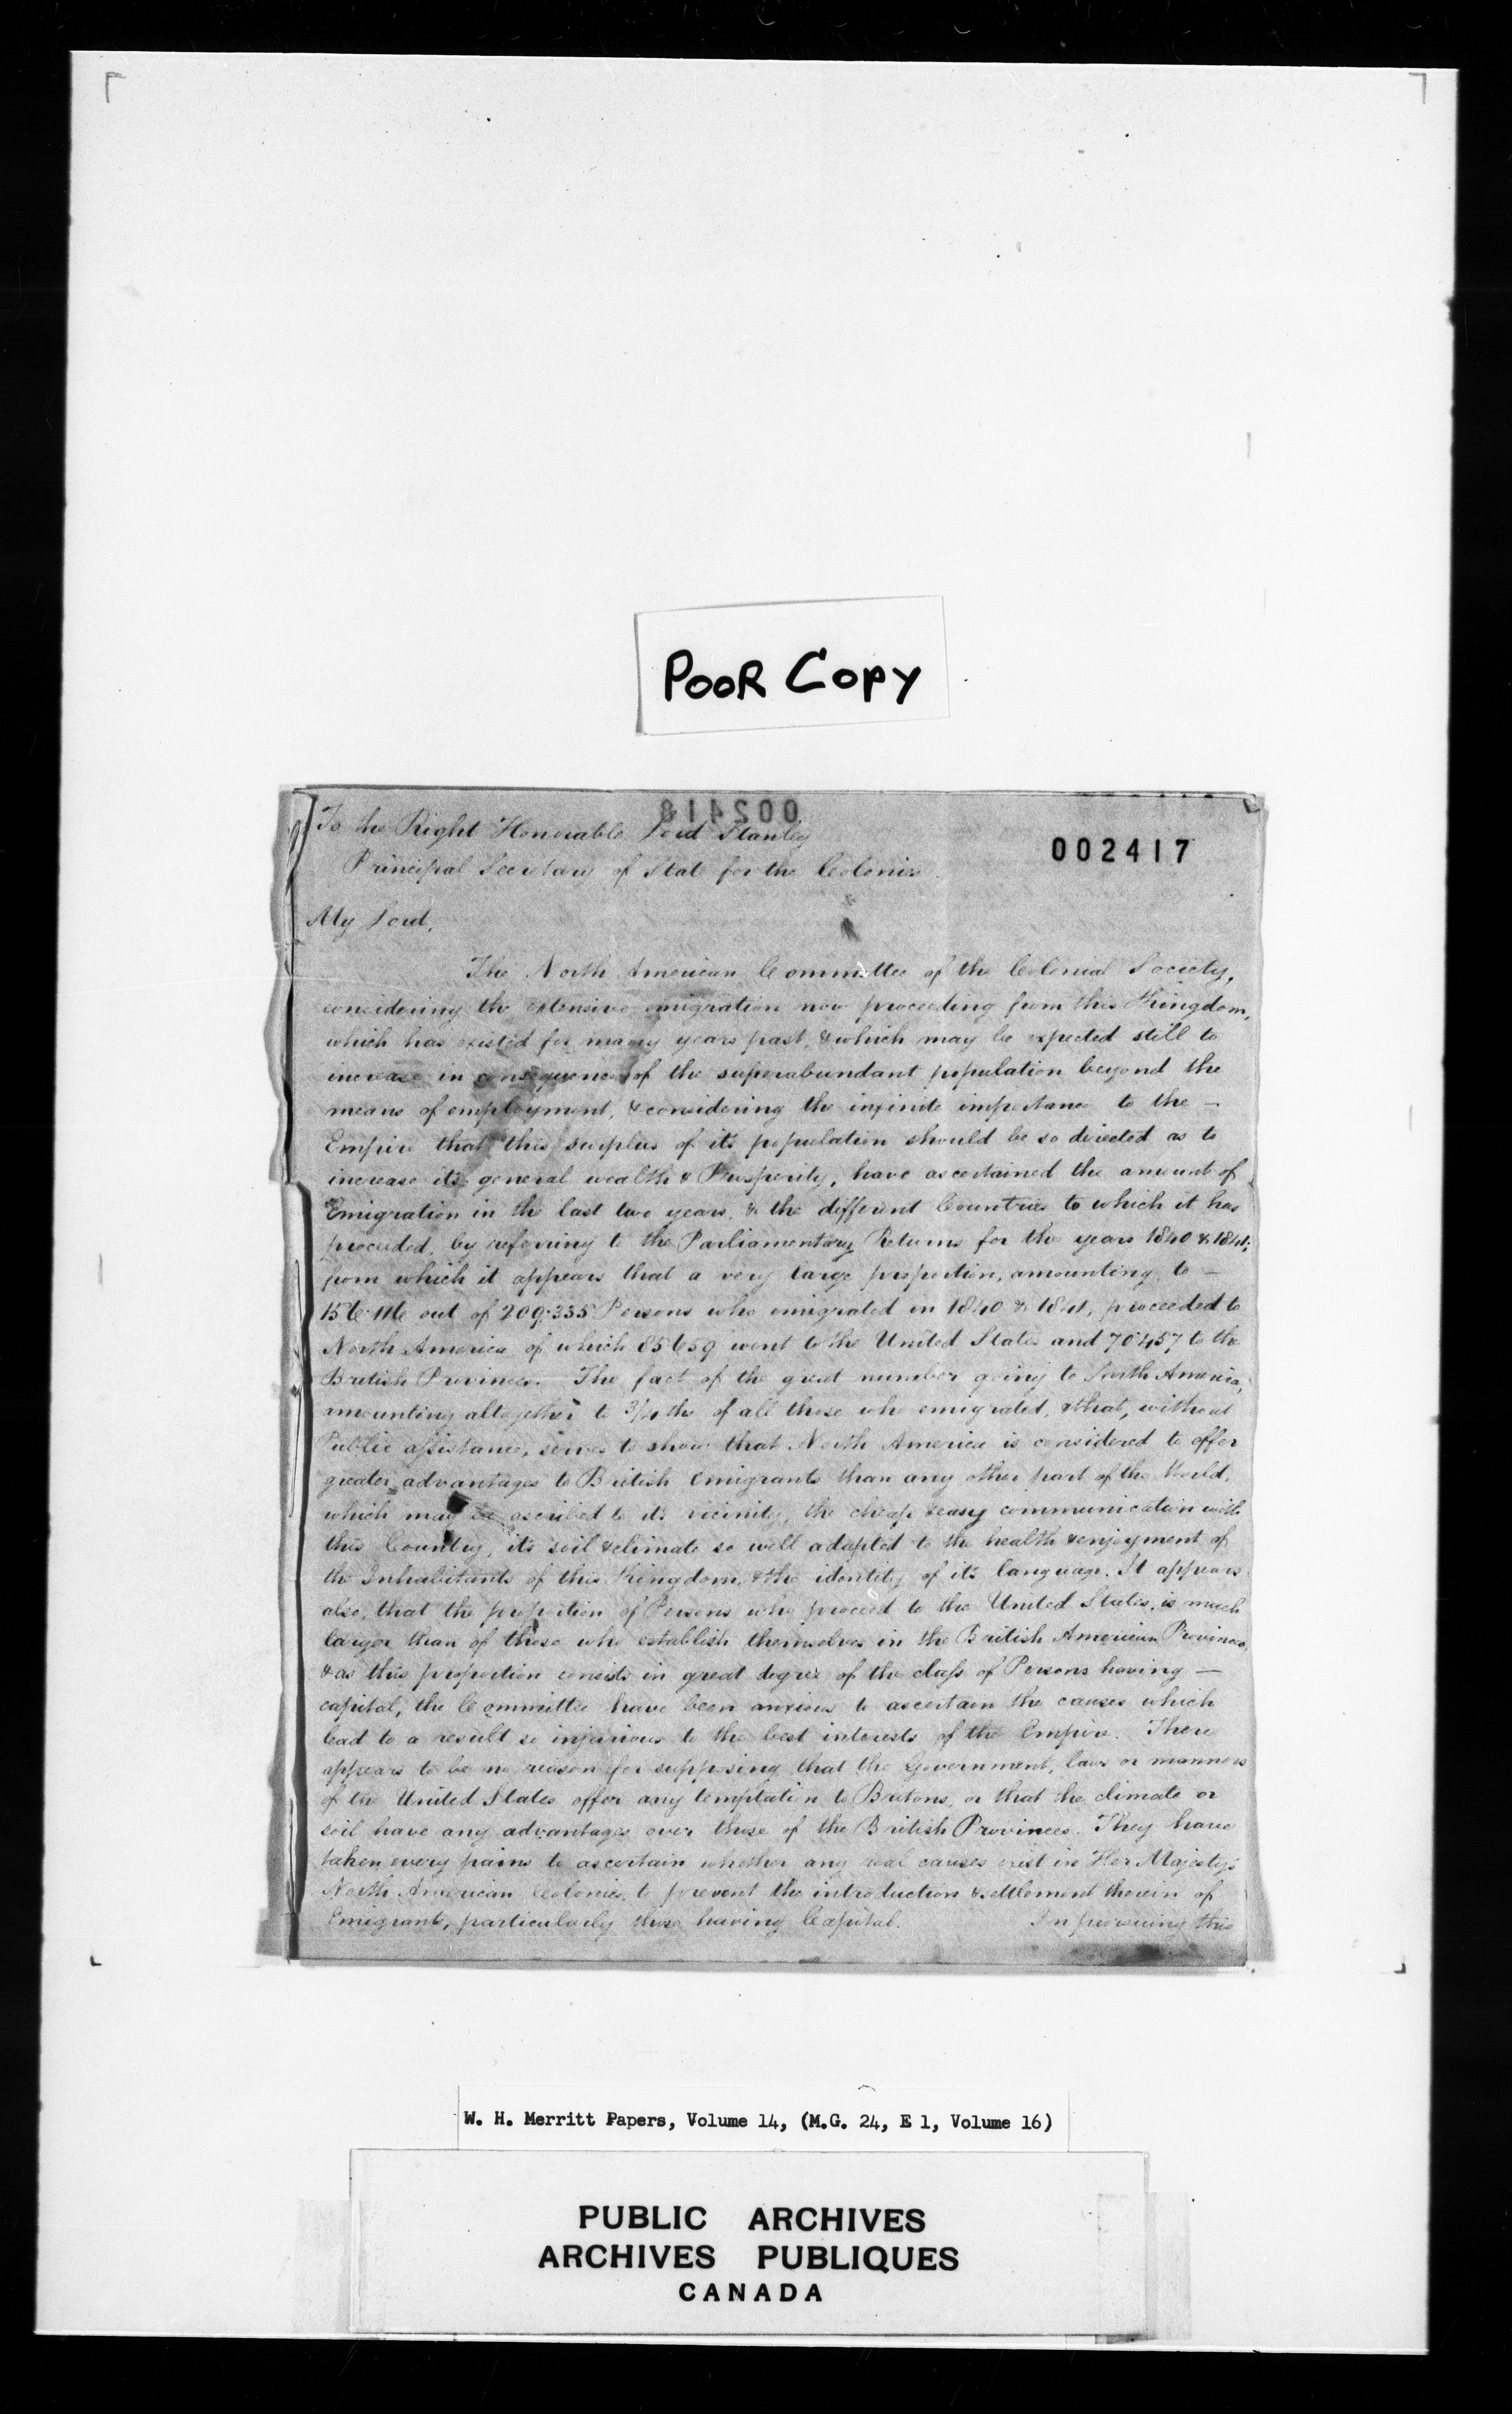 POOR Copy
002418
002417
To the Right Honorable Lord Stanley
Principal Secretary of State for the Colonies.
My Lord,
The North American Committee of the Colonial Society,
considering the extensive emigration now proceeding from this Kingdom,
which has existed for many years past, & which may be expected still to
increase in consequence of the superabundant population beyond the
means of employment, & considering the infinite importance to the —
Empire that this surplus of its population should be so directed as to
increase its general wealth & Prosperity, have ascertained the amount of
Emigration in the last two years, & the different Countries to which it has
proceeded, by referring to the Parliamentary Returns for the years 1840 & 1841;
from which it appears that a very large proportion, amounting to —
156·116 out of 209·335 Persons who emigrated in 1840 & 1841, proceeded to
North America of which 85·659 went to the United States and 70·457 to the
British Provinces. The fact of the great number going to North America,
amounting altogether to 3/4ths of all those who emigrated, & that, without
Public assistance, serves to show that North America is considered to offer
greater advantages to British Emigrants than any other part of the World,
which may be ascribed to its vicinity, the cheap & easy communication with
this Country, its soil & climate so well adapted to the health & enjoyment of
the Inhabitants of this Kingdom, & the identity of its language. It appears
also, that the proportion of Persons who proceed to the United States, is much
larger than of those who establish themselves in the British American Provinces,
& as this proportion consists in great degree of the class of Persons having —
capital, the Committee have been anxious to ascertain the causes which
lead to a result so injurious to the best interests of the Empire. There
appears to be no reason for supposing that the Government, laws or manners
of the United States offer any temptation to Britons, or that the climate or
soil have any advantages over those of the British Provinces. They have
taken every pains to ascertain whether any real causes exist in Her Majesty's
North American Colonies, to prevent the introduction & settlement therein of
Emigrants, particularly those having Capital. In pursuing this
W. H. Merritt Papers, Volume 14, (M.G. 24, E 1, Volume 16)
PUBLIC ARCHIVES
ARCHIVES PUBLIQUES
CANADA